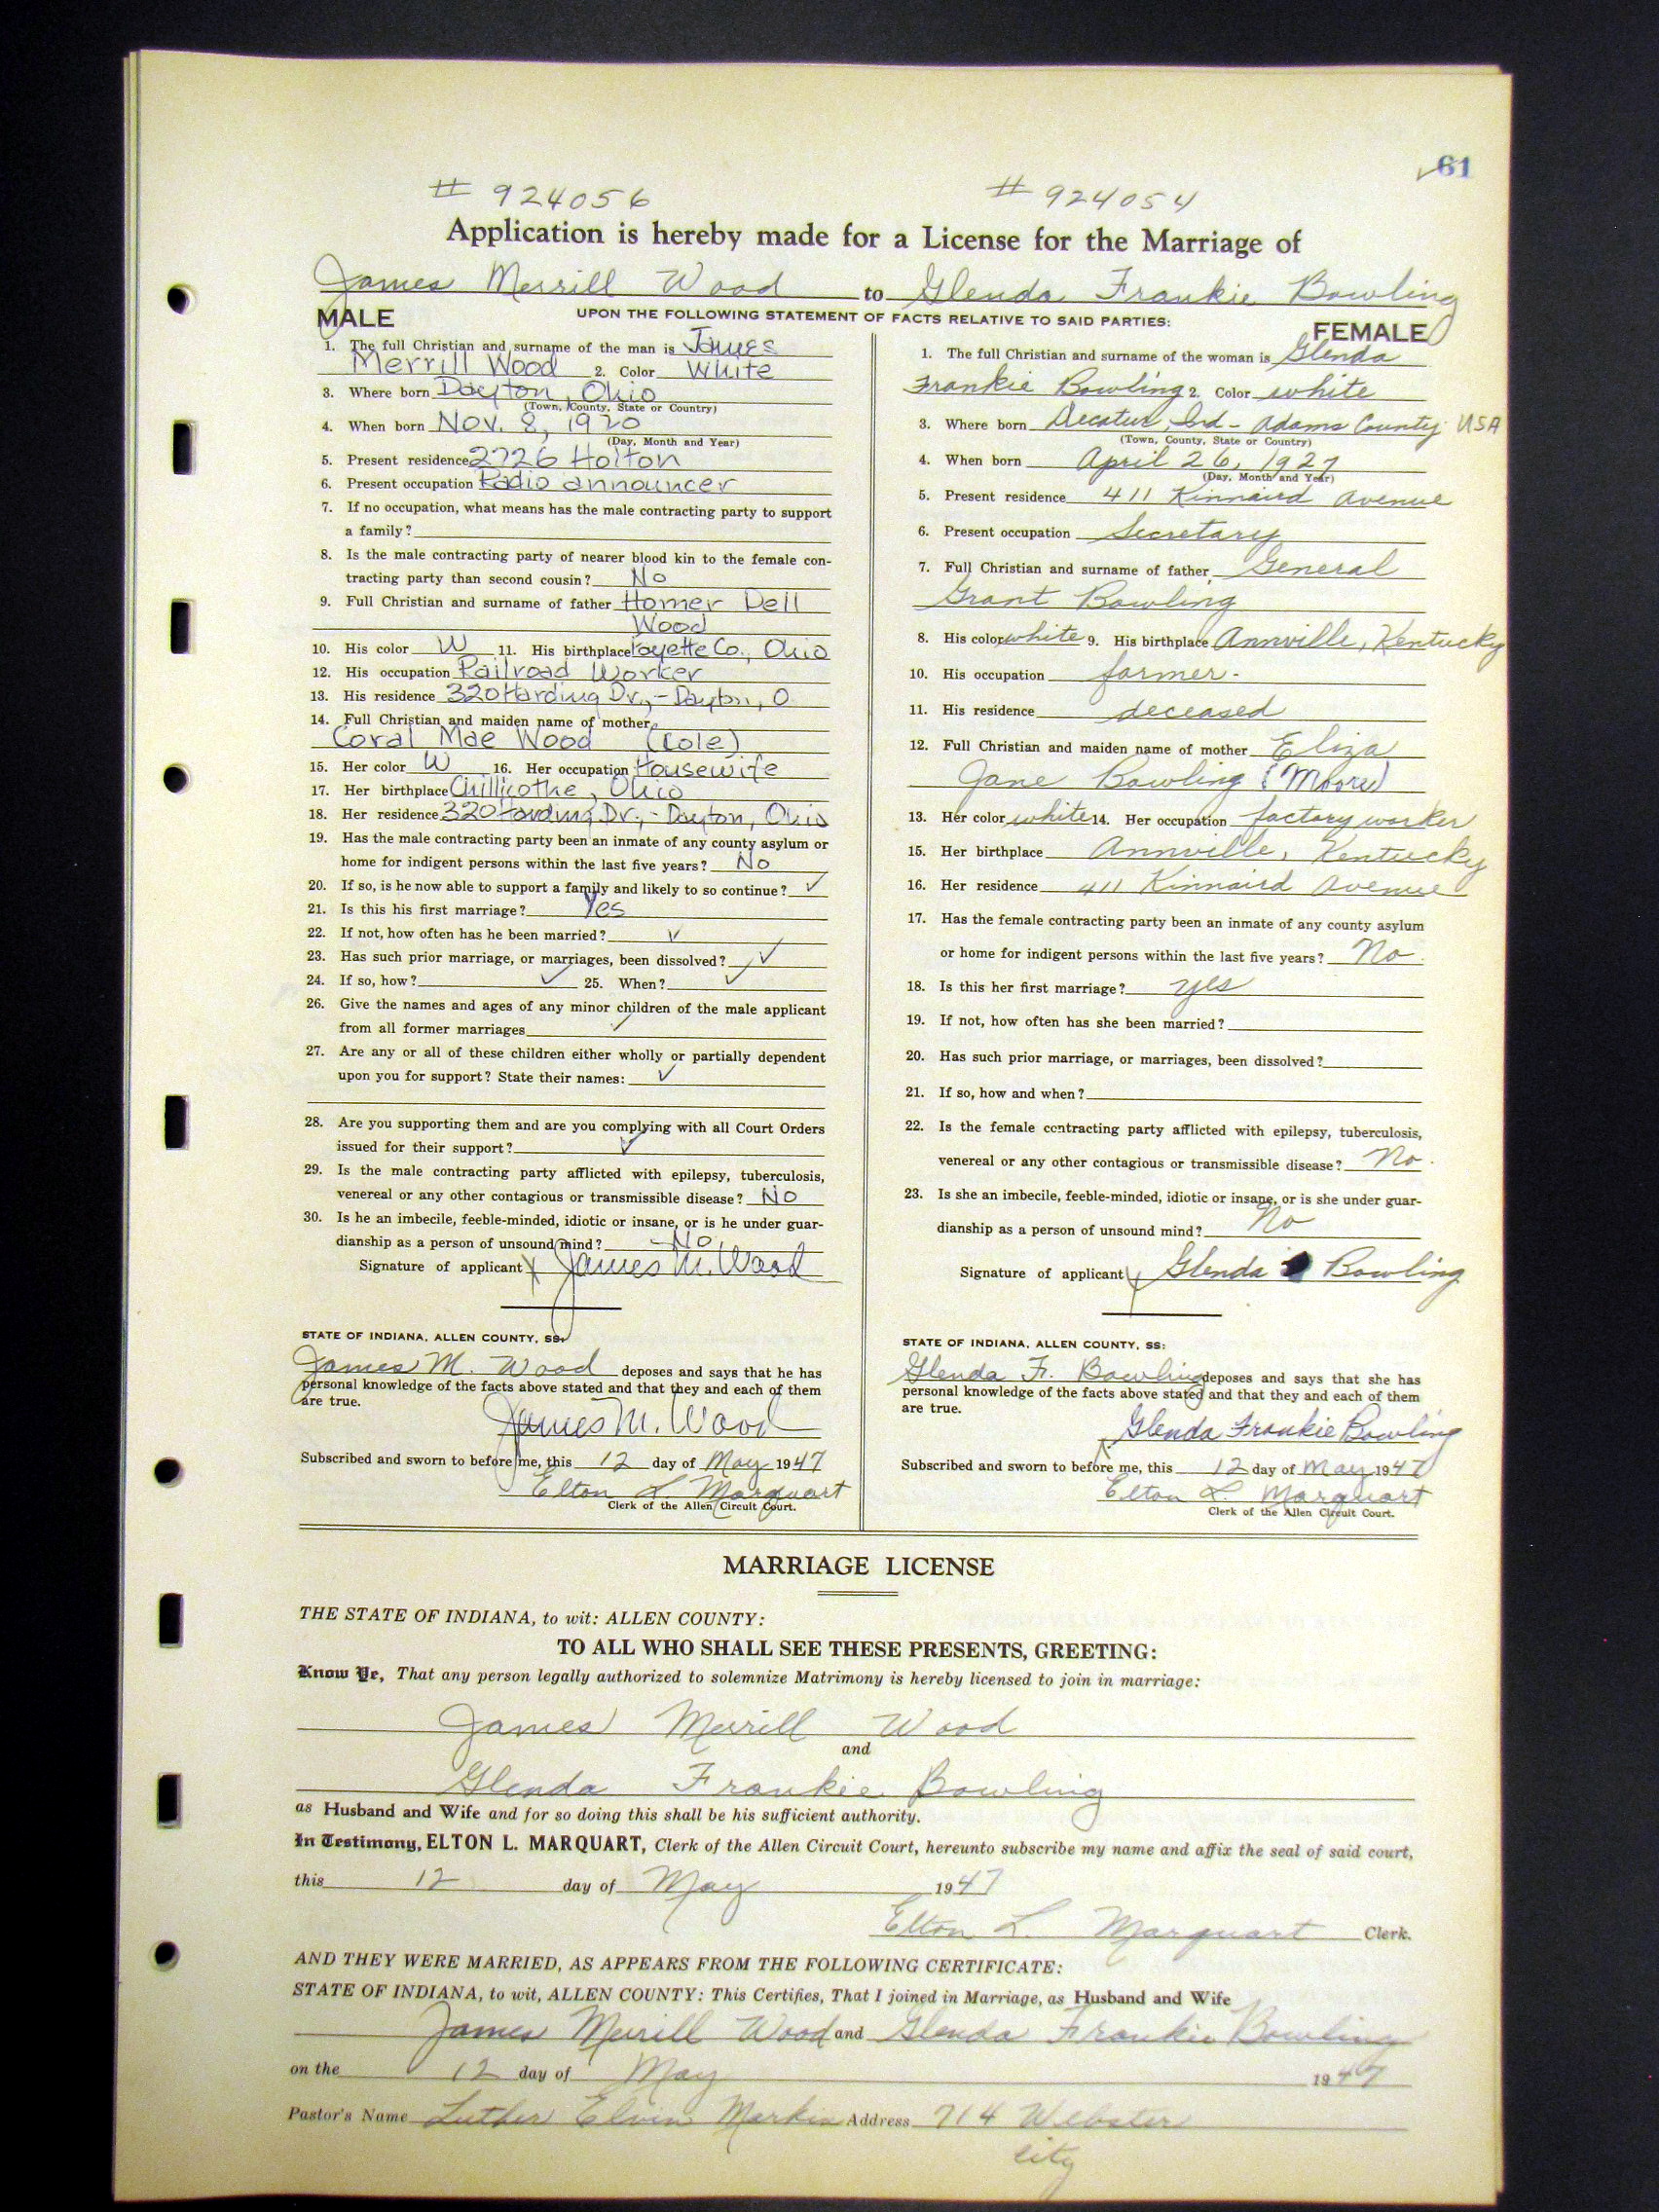 61
# 924056 # 924054
Application is hereby made for a License for the Marriage of
James Merrill Wood to Glenda Frankie Bowling
UPON THE FOLLOWING STATEMENT OF FACTS RELATIVE TO SAID PARTIES:
MALE
1. The full Christian and surname of the man is James
Merrill Wood 2. Color White
3. Where born Dayton, Ohio
(Town, County, State or Country)
4. When born Nov. 8, 1920
(Day, Month and Year)
5. Present residence 2726 Holton
6. Present occupation Radio announcer
7. If no occupation, what means has the male contracting party to support
a family?
8. Is the male contracting party of nearer blood kin to the female con-
tracting party than second cousin? No
9. Full Christian and surname of father Homer Dell
Wood
10. His color W 11. His birthplace Fayette Co., Ohio
12. His occupation Railroad Worker
13. His residence 320 Harding Dr., - Dayton, O
14. Full Christian and maiden name of mother
Coral Mae Wood (Cole)
15. Her color W 16. Her occupation Housewife
17. Her birthplace Chillicothe, Ohio
18. Her residence 320 Harding Dr., - Dayton, Ohio
19. Has the male contracting party been an inmate of any county asylum or
home for indigent persons within the last five years? No
20. If so, is he now able to support a family and likely to so continue? ✓
21. Is this his first marriage? Yes
22. If not, how often has he been married? ✓
23. Has such prior marriage, or marriages, been dissolved? ✓
24. If so, how? ✓ 25. When? ✓
26. Give the names and ages of any minor children of the male applicant
from all former marriages ✓
27. Are any or all of these children either wholly or partially dependent
upon you for support? State their names: ✓
28. Are you supporting them and are you complying with all Court Orders
issued for their support? ✓
29. Is the male contracting party afflicted with epilepsy, tuberculosis,
venereal or any other contagious or transmissible disease? No
30. Is he an imbecile, feeble-minded, idiotic or insane, or is he under guar-
dianship as a person of unsound mind? No
Signature of applicant x James M. Wood
STATE OF INDIANA, ALLEN COUNTY, SS:
James M. Wood deposes and says that he has
personal knowledge of the facts above stated and that they and each of them
are true.
James M. Wood
Subscribed and sworn to before me, this 12 day of May 1947
Elton L. Marquart
Clerk of the Allen Circuit Court.
FEMALE
1. The full Christian and surname of the woman is Glenda
Frankie Bowling 2. Color white
3. Where born Decatur, Ind - Adams County USA
(Town, County, State or Country)
4. When born April 26, 1927
(Day, Month and Year)
5. Present residence 411 Kinnaird Avenue
6. Present occupation Secretary
7. Full Christian and surname of father General
Grant Bowling
8. His color white 9. His birthplace Annville, Kentucky
10. His occupation farmer -
11. His residence deceased
12. Full Christian and maiden name of mother Eliza
Jane Bowling (Moore)
13. Her color white 14. Her occupation factory worker
15. Her birthplace Annville, Kentucky
16. Her residence 411 Kinnaird Avenue
17. Has the female contracting party been an inmate of any county asylum
or home for indigent persons within the last five years? No
18. Is this her first marriage? yes
19. If not, how often has she been married?
20. Has such prior marriage, or marriages, been dissolved?
21. If so, how and when?
22. Is the female contracting party afflicted with epilepsy, tuberculosis,
venereal or any other contagious or transmissible disease? No
23. Is she an imbecile, feeble-minded, idiotic or insane, or is she under guar-
dianship as a person of unsound mind? No
Signature of applicant x Glenda Bowling
STATE OF INDIANA, ALLEN COUNTY, SS:
Glenda F. Bowling deposes and says that she has
personal knowledge of the facts above stated and that they and each of them
are true.
x Glenda Frankie Bowling
Subscribed and sworn to before me, this 12 day of May 1947
Elton L. Marquart
Clerk of the Allen Circuit Court.
MARRIAGE LICENSE
THE STATE OF INDIANA, to wit: ALLEN COUNTY:
TO ALL WHO SHALL SEE THESE PRESENTS, GREETING:
Know Ye, That any person legally authorized to solemnize Matrimony is hereby licensed to join in marriage:
James Merrill Wood
and
Glenda Frankie Bowling
as Husband and Wife and for so doing this shall be his sufficient authority.
In Testimony, ELTON L. MARQUART, Clerk of the Allen Circuit Court, hereunto subscribe my name and affix the seal of said court,
this 12 day of May 1947
Elton L. Marquart Clerk.
AND THEY WERE MARRIED, AS APPEARS FROM THE FOLLOWING CERTIFICATE:
STATE OF INDIANA, to wit, ALLEN COUNTY: This Certifies, That I joined in Marriage, as Husband and Wife
James Merrill Wood and Glenda Frankie Bowling
on the 12 day of May 1947
Pastor's Name Luther Elvin Markin Address 714 Webster
City